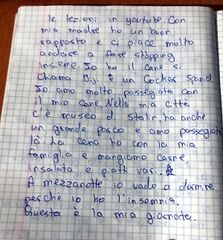 le lezioni in youtube. Con
mia madre ho un buon
rapporto e ci piace molto
andare a fare shopping
insieme. Io ho il cane si
chiama Dij, è un Cocker Spaniel
Io amo molto passegiata con
il mio cane. Nella mia città
c'è museo di stalin, ha anche
un grande parco e amo passegiata
là. La cena ho con la mia
famiglia e mangiamo carne,
insalata e piatti vari.
A mezzanotte io vado a dormire
perche io ho l'insomnia.
Questa è la mia giornata.